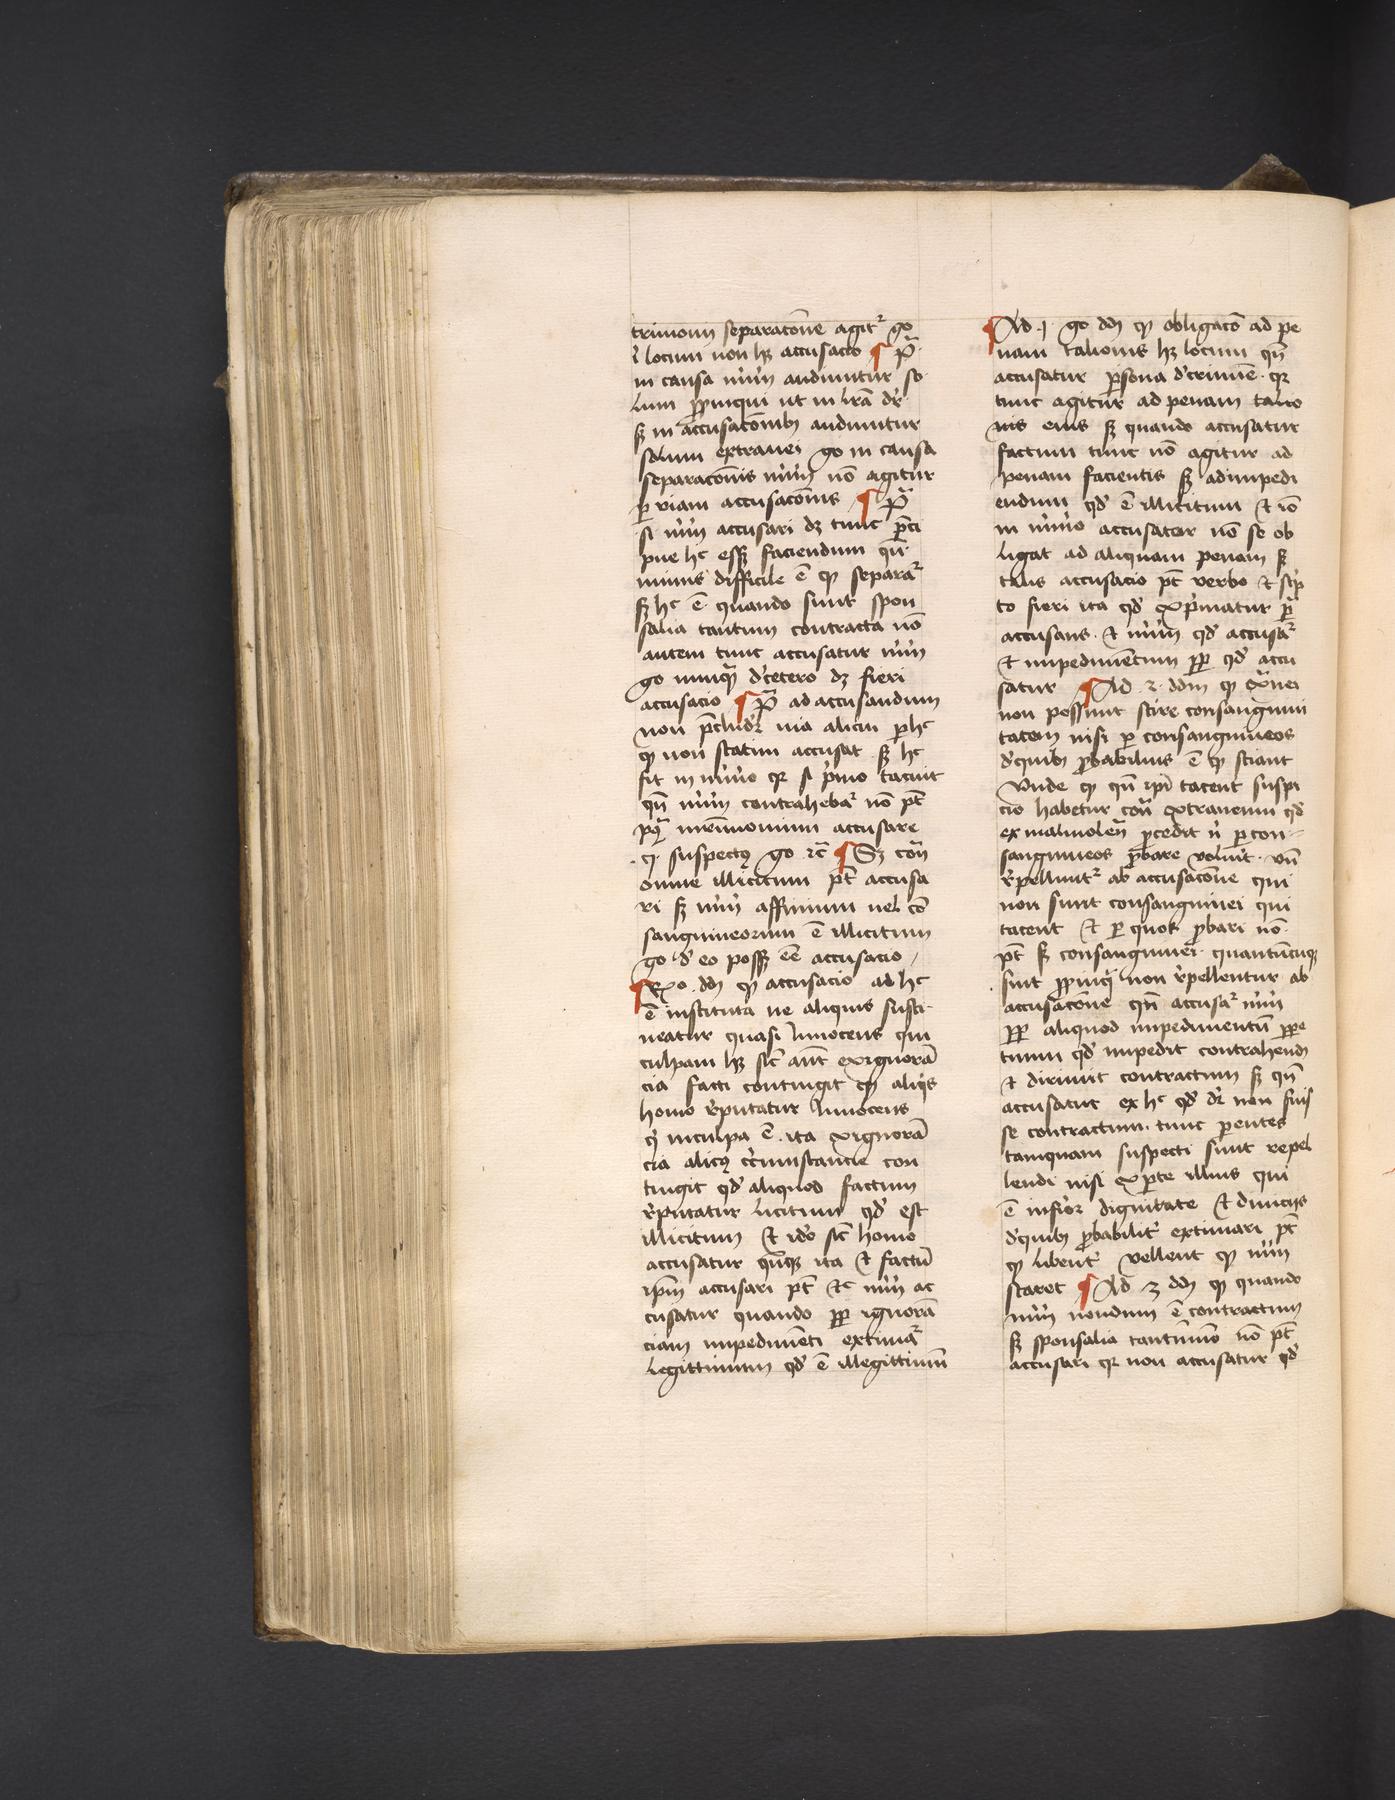 trimonii separacōne agitʳ go
i locum non hꝫ accusacio ¶ p̄ᵃ
in causa mr̄ii audiuntur so
lum ꝓpinqui ut in lr̄a dr̄
sꝫ in accusacōnibꝰ audiuntur
solum extranei go in causa
separacōnis mr̄ii nō agitur
ꝑ viam accusacōnis ¶ p̄ᵃ
si mr̄iū accusari dꝫ tunc p̄ci
pue hᶜ essꝫ faciendum qn̄
minus difficile ē qꝫ separaʳ
sꝫ hᶜ ē quando sunt spon
salia tantum contracta nō
autem tunc accusatur mr̄iū
go nunqᵃ̄ d'cetero dꝫ fieri
accusacio ¶ p̄ᵃ ad accusandum
non p̄cludiʳ uia alicui ꝑ hᶜ
qꝫ non statim accusat sꝫ hᶜ
fit in mr̄io qꝛ si pⁱmo tacuit
qn̄ mr̄iū contrahebaʳ nō pt̄
pꝰqᵃ mr̄imonium accusare
qⁱ suspectꝰ go ꝛc̄ ¶ Sꝫ cōn
omne illicitum pt̄ accusa
ri sꝫ mr̄iū affinium uel cō
sanguineorum ē illicitum
go d' eo possꝫ ēē accusacio
¶ Rn̄o dd̄m qꝫ accusacio ad hᶜ
ē instituta ne aliquis susti
neatur quasi innocens qui
culpam hꝫ sic̄ aut̄ ex ignorā
cia facti contingit qꝫ aliqⁱs
homo reputatur innocens
qⁱ in culpa ē ita ex ignorā
cia alicꝰ circumstancie con
tingit qd̄ aliquod factum
reputatur licitum qd̄ est
illicitum Et ido sic̄ homo
accusatur qn̄qꝫ ita et factū
ipm̄ accusari pt̄ Et sic mr̄iū ac
cusatur quando ꝓpt' ignorā
ciam impedimēti extimaʳ
legittimum qd̄ ē illegittimū
¶ Ad .j. go dd̄m qꝫ obligacō ad pe
nam talionis hꝫ locum qn̄
accusatur ꝑsona d'crimīe qꝛ
tunc agitur ad penam talio
nis eius sꝫ quando accusatur
factum tunc nō agitur ad
penam facientis sꝫ ad impedi
endum qd̄ ē illicitum Et iō
in mr̄io accusator nō se ob
ligat ad aliquam penam sꝫ
talis accusacio pt̄ verbo et scⁱp
to fieri ita qd̄ expⁱmatur ꝑ
accusans et mr̄iū qd̄ accusaʳ
et impedimentum ꝓpt' qd̄ accu
satur ¶ Ad 2 dd̄m qꝫ exᵃnei
non possunt scire consanguini
tatem nisi ꝑ consanguineos
d'quibꝰ ꝓbabilius ē qꝫ sciant
Vnde qꝫ qn̄ ipī tacent suspi
cio habetur con̄ extraneum qd̄
ex maliuolen̄ ꝓcedit nⁱ ꝑ con
sanguineos ꝓbare voluīt vn̄
repellunt' ab accusacōne qui
non sunt consanguinei qui
tacent Et ꝑ quos ꝓbari nō
pt̄ sꝫ consanguinei quantūcūqꝫ
sint ꝓpinqⁱ non repellentur ab
accusacōne qn̄ accusaʳ mr̄iū
ꝓpt' aliquod impedimentū ꝑpe
tuum qd̄ impedit contrahendū
et dirimit contractum sꝫ qn̄
accusatur ex hᶜ qd̄ dr̄ non fuis
se contractum tunc parentes
tamquam suspecti sunt repel
lendi nisi ex parte illius qui
ē inferior dignitate et diuiciis
d'quibꝰ ꝓbabilit' extimari pt̄
qꝫ libent' vellent qꝫ mr̄iū
staret ¶ Ad 3 dd̄m qꝫ quando
mr̄iū nondum ē contractum
sꝫ sponsalia tantūmō nō pt̄
accusari qꝛ non accusatur qd̄